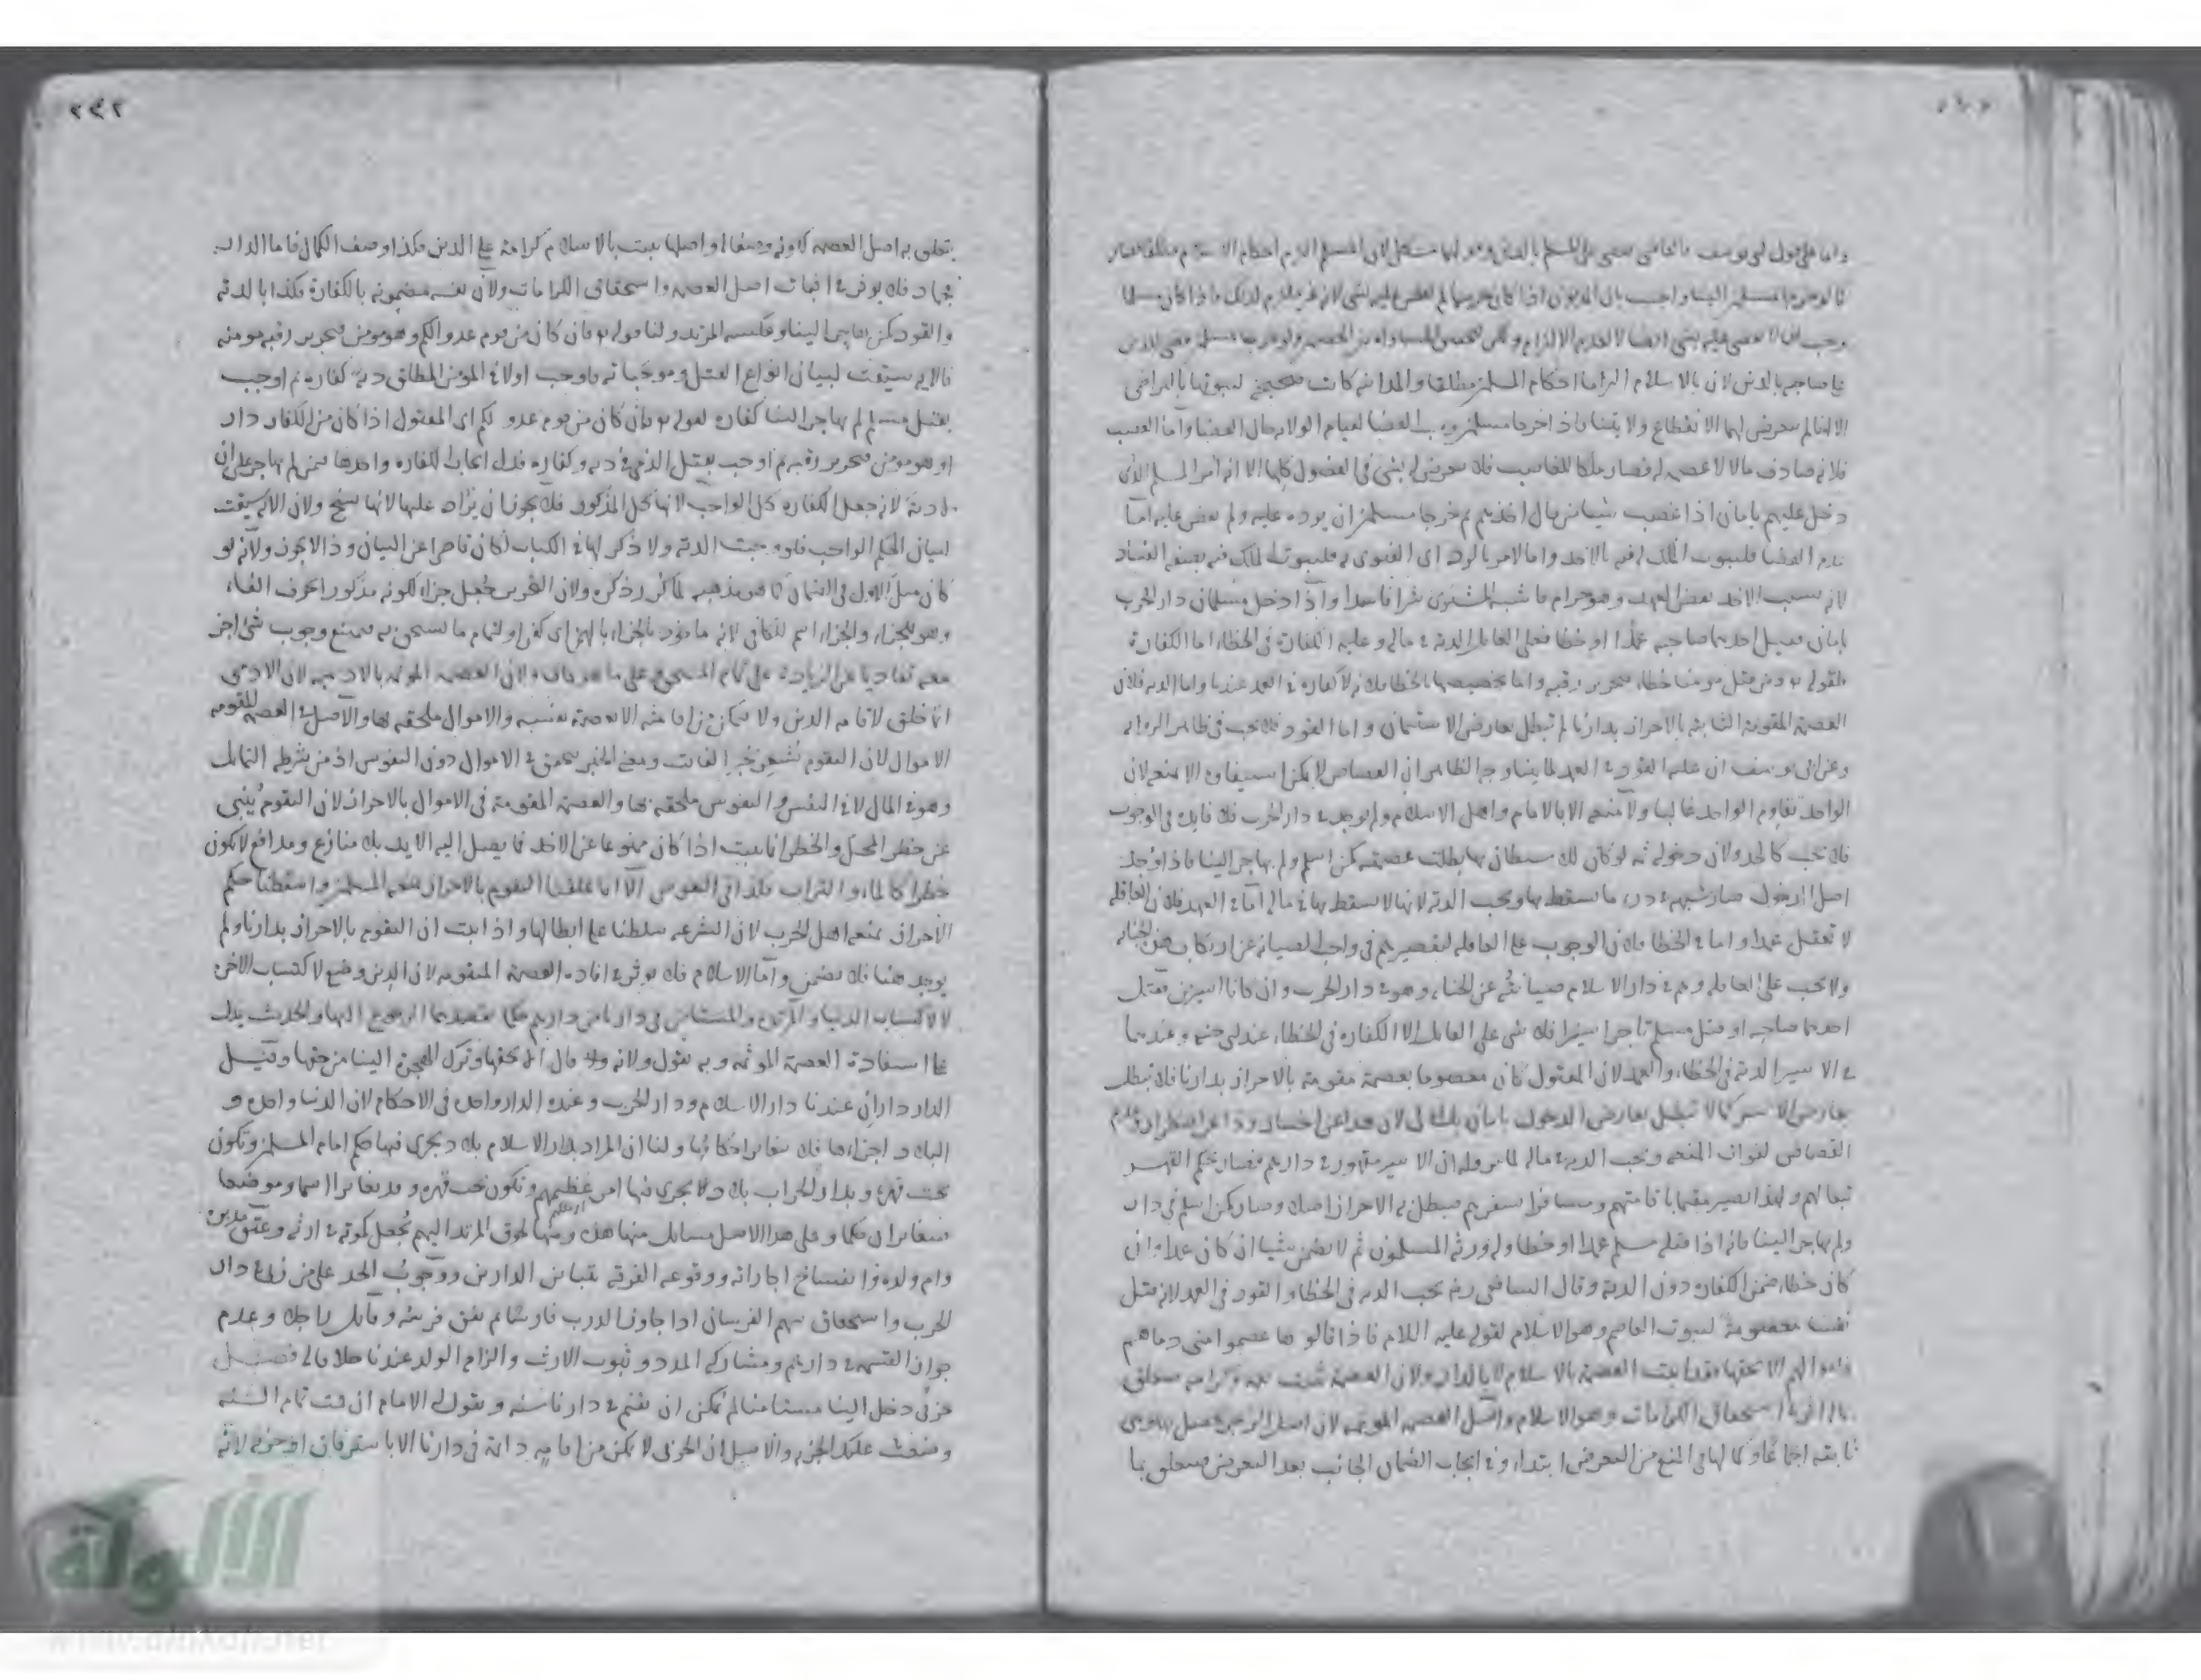 واما على قول ابى يوسف فالقاضى يقضى على المسلم بالدين
وجب ان لا يقضى عليه بشى ايضا لانعدام الالتزام ولكن
على صاحبه بالدين لان بالاسلام التزما احكام المسلمين مطلقا والمداينة كانت صحيحة لثبوتها بالتراضى
الا انا لم نتعرض لهما لانقطاع ولايتنا فاذا خرجا مسلمين وجب القضا لقيام الولاية حال القضا واما الغصب
فلانه صادف مالا لا عصمة له فصار ملكا للغاصب فلا يتعرض له بشى فى الفصول كلها الا انه امر المسلم الذى
دخل عليهم بامان اذا غصب شيئا من مال احدهم ثم خرجا مسلمين ان يرده عليه ولم يقض عليه اما
عدم القضا فلثبوت الملك له فيه بالاخذ واما الامر بالرد اى الفتوى به فلثبوت الملك فيه بصفة الفساد
لانه بسبب الاخذ نقض العهد وهو حرام فاشبه المشترى شرا فاسدا واذا دخل مسلمان دار الحرب
بامان فقتل احدهما صاحبه عمدا او خطا فعلى القاتل الدية فى ماله وعليه الكفارة فى الخطاء اما الكفارة
فلقوله تع ومن قتل مومنا خطاء فتحرير رقبة واما تخصيصها بالخطا فلانه لا كفارة فى العمد عندنا واما الدية فلان
العصمة المقومة الثابتة بالاحراز بدارنا لم تبطل بعارض الاستيمان واما القود فلا يجب فى ظاهر الرواية
وعن ابى يوسف ان عليه القود فى العمد لما بينا وجه الظاهر ان القصاص لا يمكن استيفاوه الا بمنعة لان
الواحد يقاوم الواحد غالبا ولا منعة الا بالامام واهل الاسلام ولم يوجد فى دار الحرب فلا فايدة فى الوجوب
فلا يجب كالحد ولان دخوله ثمه لو كان للاستيطان بها بطلت عصمته كمن اسلم ولم يهاجر الينا فاذا وجد
اصل الدخول صار شبهة فى درء ما يسقط بها ويجب الدية لانها لا تسقط بها فى ماله اما فى العمد فلان العاقلة
لا تعقل عمدا واما فى الخطا فلان الوجوب على العاقلة لتقصيرهم فى واجب الصيانة عن ارتكاب هذه الجناية
ولا يجب على العاقلة وهم فى دار الاسلام صيانته عن الجناية وهو فى دار الحرب وان كانا اسيرين فقتل
احدهما صاحبه او قتل مسلم تاجر اسيرا فلا شى على القاتل الا الكفارة فى الخطاء عند ابى حنيفة وعندهما
فى الاسير الدية فى الخطاء والعمد لان المقتول كان معصوما بعصمة مقومة بالاحراز بدارنا فلا تبطل
بعارض الاسر كما لا تبطل بعارض الدخول بامان
القصاص لفوات المنعة ويجب الدية فى ماله لما مر وله ان الاسير مقهور فى دارهم فصار بحكم القهر
تبعا لهم ولهذا يصير مقيما باقامتهم ومسافرا بسفرهم فيبطل به الاحراز اصلا وصار كمن اسلم فى دار
ولم يهاجر الينا فانه اذا قتله مسلم عمدا او خطا وله ورثة مسلمون ثم لا يضمن شيئا ان كان عمدا وان
كان خطاء ضمن الكفارة دون الدية وقال الشافعى رحه يجب الدية فى الخطا والقود فى العمد لانه قتل
نفسا معصومة لثبوت العاصم وهو الاسلام لقوله عليه السلام فاذا قالوها عصموا منى دماهم
واموالهم الا بحقها فقد ثبتت العصمة بالاسلام لا بالدار ولان العصمة تثبت نعمة وكرامة فتتعلق
بماله اثر فى استحقاق الكرامات وهو الاسلام واصل العصمة الموثمة لان اصل الزجر يحصل بها وهى
ثابتة اجماعا وكمالها فى المنع من التعرض ابتداء وفى ايجاب الضمان الجانب بعد التعرض فيتعلق بما
٢٩٢
يتعلق به اصل العصمة لكونه وصفا له واصلها يثبت بالاسلام كرامة على الدين فكذا وصف الكمال فاما الدار
جهاد فلا يوثر فى اثبات اصل العصمة واستحقاق الكرامات ولان نفسه مضمونة بالكفارة فكذا بالدية
والقود كمن هاجر الينا وعكسه المرتد ولنا قوله تع فان كان من قوم عدو لكم وهو مومن فتحرير رقبة مومنة
فالاية سيقت لبيان انواع القتل وموجباته فاوجب اولا فى المؤمن المطلق دية وكفارة ثم اوجب
بقتل مسلم لم يهاجر الينا كفارة لقوله تع فان كان من قوم عدو لكم اى المقتول اذا كان من الكفار دار
او هو مومن فتحرير رقبة ثم اوجب بقتل الذمى دية وكفارة فدل ايجاب الكفارة وحدها فيمن لم يهاجر على ان
لا دية لانه جعل الكفارة كل الواجب لانها كل المذكور فلا يجوز ان يزاد عليها لانها نسخ ولان الاية سيقت
لبيان الحكم الواجب فلو وجبت الدية ولا ذكر لها فى الكتاب لكان قاصرا عن البيان وذا لا يجوز ولانه لو
كان مثل الاول فى الضمان كما هو مذهبه لما كرر ذكره ولان التحرير جعل جزاء لكونه مذكورا بحرف الفاء
وهو للجزاء والجزاء اسم للكافى لانه ماخوذ من الجزاء بالهمز اى كفى او لتمام ما يستحق به فيمتنع وجوب شى اخر
معه تفاديا عن الزيادة على تمام المستحق على ما هو كاف ولان العصمة الموثمة بالادمية لان الادمى
انما خلق لاقامة الدين ولا يتمكن من اقامته الا بعصمة نفسه والاموال ملحقة بها والاصل فى العصمة المقومة
الاموال لان التقوم يشعر بجبر الفائت ومعنى الجبر يتحقق فى الاموال دون النفوس اذ من شرطه التماثل
وهو فى المال لا فى النفس والنفوس ملحقة بها والعصمة المقومة فى الاموال بالاحراز لان التقوم يُنبى
عن خطر المحل والخطر انما يثبت اذا كان ممنوعا عن الاخذ فما يصل اليه الايد بلا منازع ومدافع لا يكون
خطرا كالماء والتراب فكذا فى النفوس الا انا علقنا التقوم بالاحراز بمنعة المسلمين واسقطنا حكم
الاحراز بمنعة اهل الحرب لان الشرع سلطنا على ابطالها واذا ثبت ان التقوم بالاحراز بدارنا ولم
يوجد هنا فلا يضمن واما الاسلام فلا يوثر فى افادة العصمة المتقومة لان الدين وضع لاكتساب الاخرة
لا لاكتساب الدنيا والمرتد والمستامن فى دارنا من دارهم حكما لقصدهما الرجوع اليها والحديث يدل
على استفادة العصمة الموثمة وبه نقول ولانه قال الا بحقها وترك الهجرة الينا من حقها وقيل
الدار داران عندنا دار الاسلام ودار الحرب وعنده الدار واحدة فى الاحكام لان الدنيا واحدة و
البلاد اجزاءها فلا يتغاير احكامها ولنا ان المراد بدار الاسلام بلاد يجرى فيها حكم امام المسلمين وتكون
تحت قهره وبدار الحراب بلاد لا يجرى فيها امر عظيمهم وتكون تحت قهره وقد تغايرا اسما وموضعا
فيتغايران حكما وعلى هذا الاصل مسائل منها هذه ومنها لحوق المرتد اليهم يجعل كموته فى ارثه وعتق مدبره
وام ولده وانفساخ اجاراته ووقوعه الفرقة بتباين الدارين ووجوب الحد على من زنى فى دار
الحرب واستحقاق سهم الفرسان اذا جاوز الدرب فارسا ثم نفق فرسه وقاتل راجلا وعدم
جواز القسمة فى دارهم ومشاركة المدد وثبوت الارث والزام الولد عندنا خلافا له فصل
حربى دخل الينا مستامنا لم يمكن ان يقيم فى دارنا سنة ويقول له الامام ان قمت تمام السنة
وضعت عليك الجزية والاصل ان الحربى لا يمكن من اقامة دائمة فى دارنا الا باسترقاق او جزية لانه
الألوكة